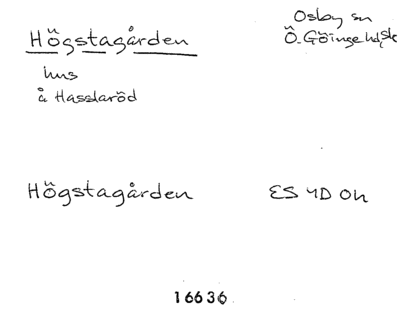 Högstagården
Osby sn
Ö. Göinge hd, Sk
hus
å Hasslaröd
Högstagården
ES 4D Oh
16636